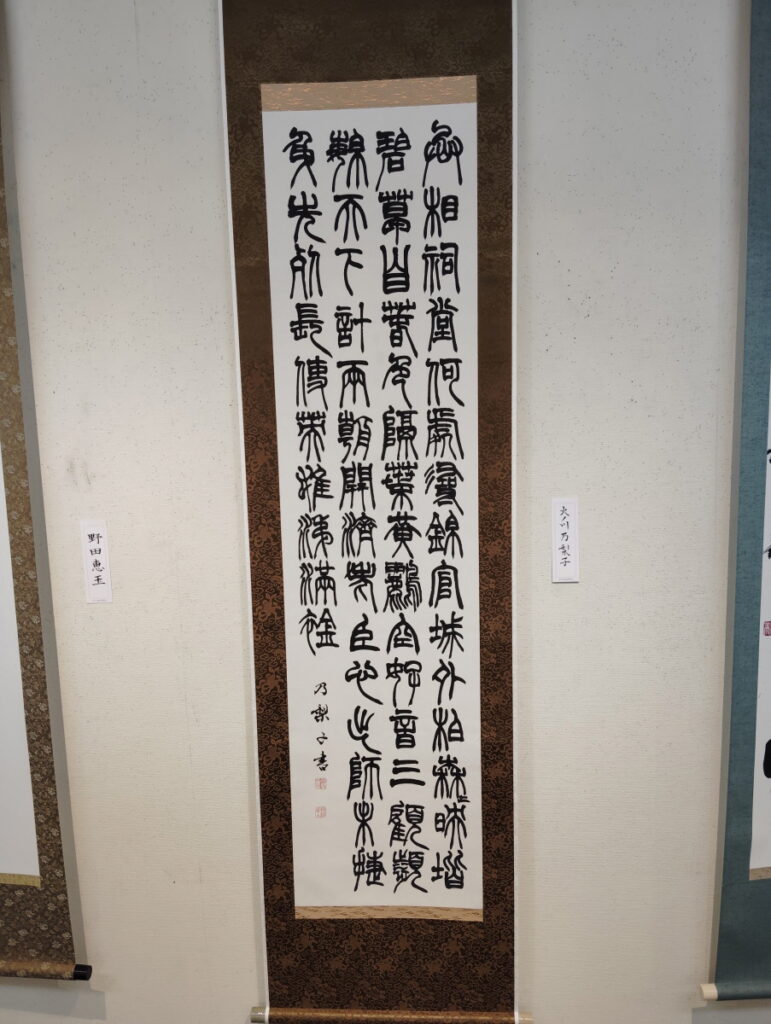 丞相祠堂何處尋錦官城外柏森〻映階
碧草自春色隔葉黃鸝空好音三顧頻
煩天下計兩朝開濟老臣心出師未捷
身先死長使英雄淚滿襟
乃梨子書
川乃梨子
野田恵玉